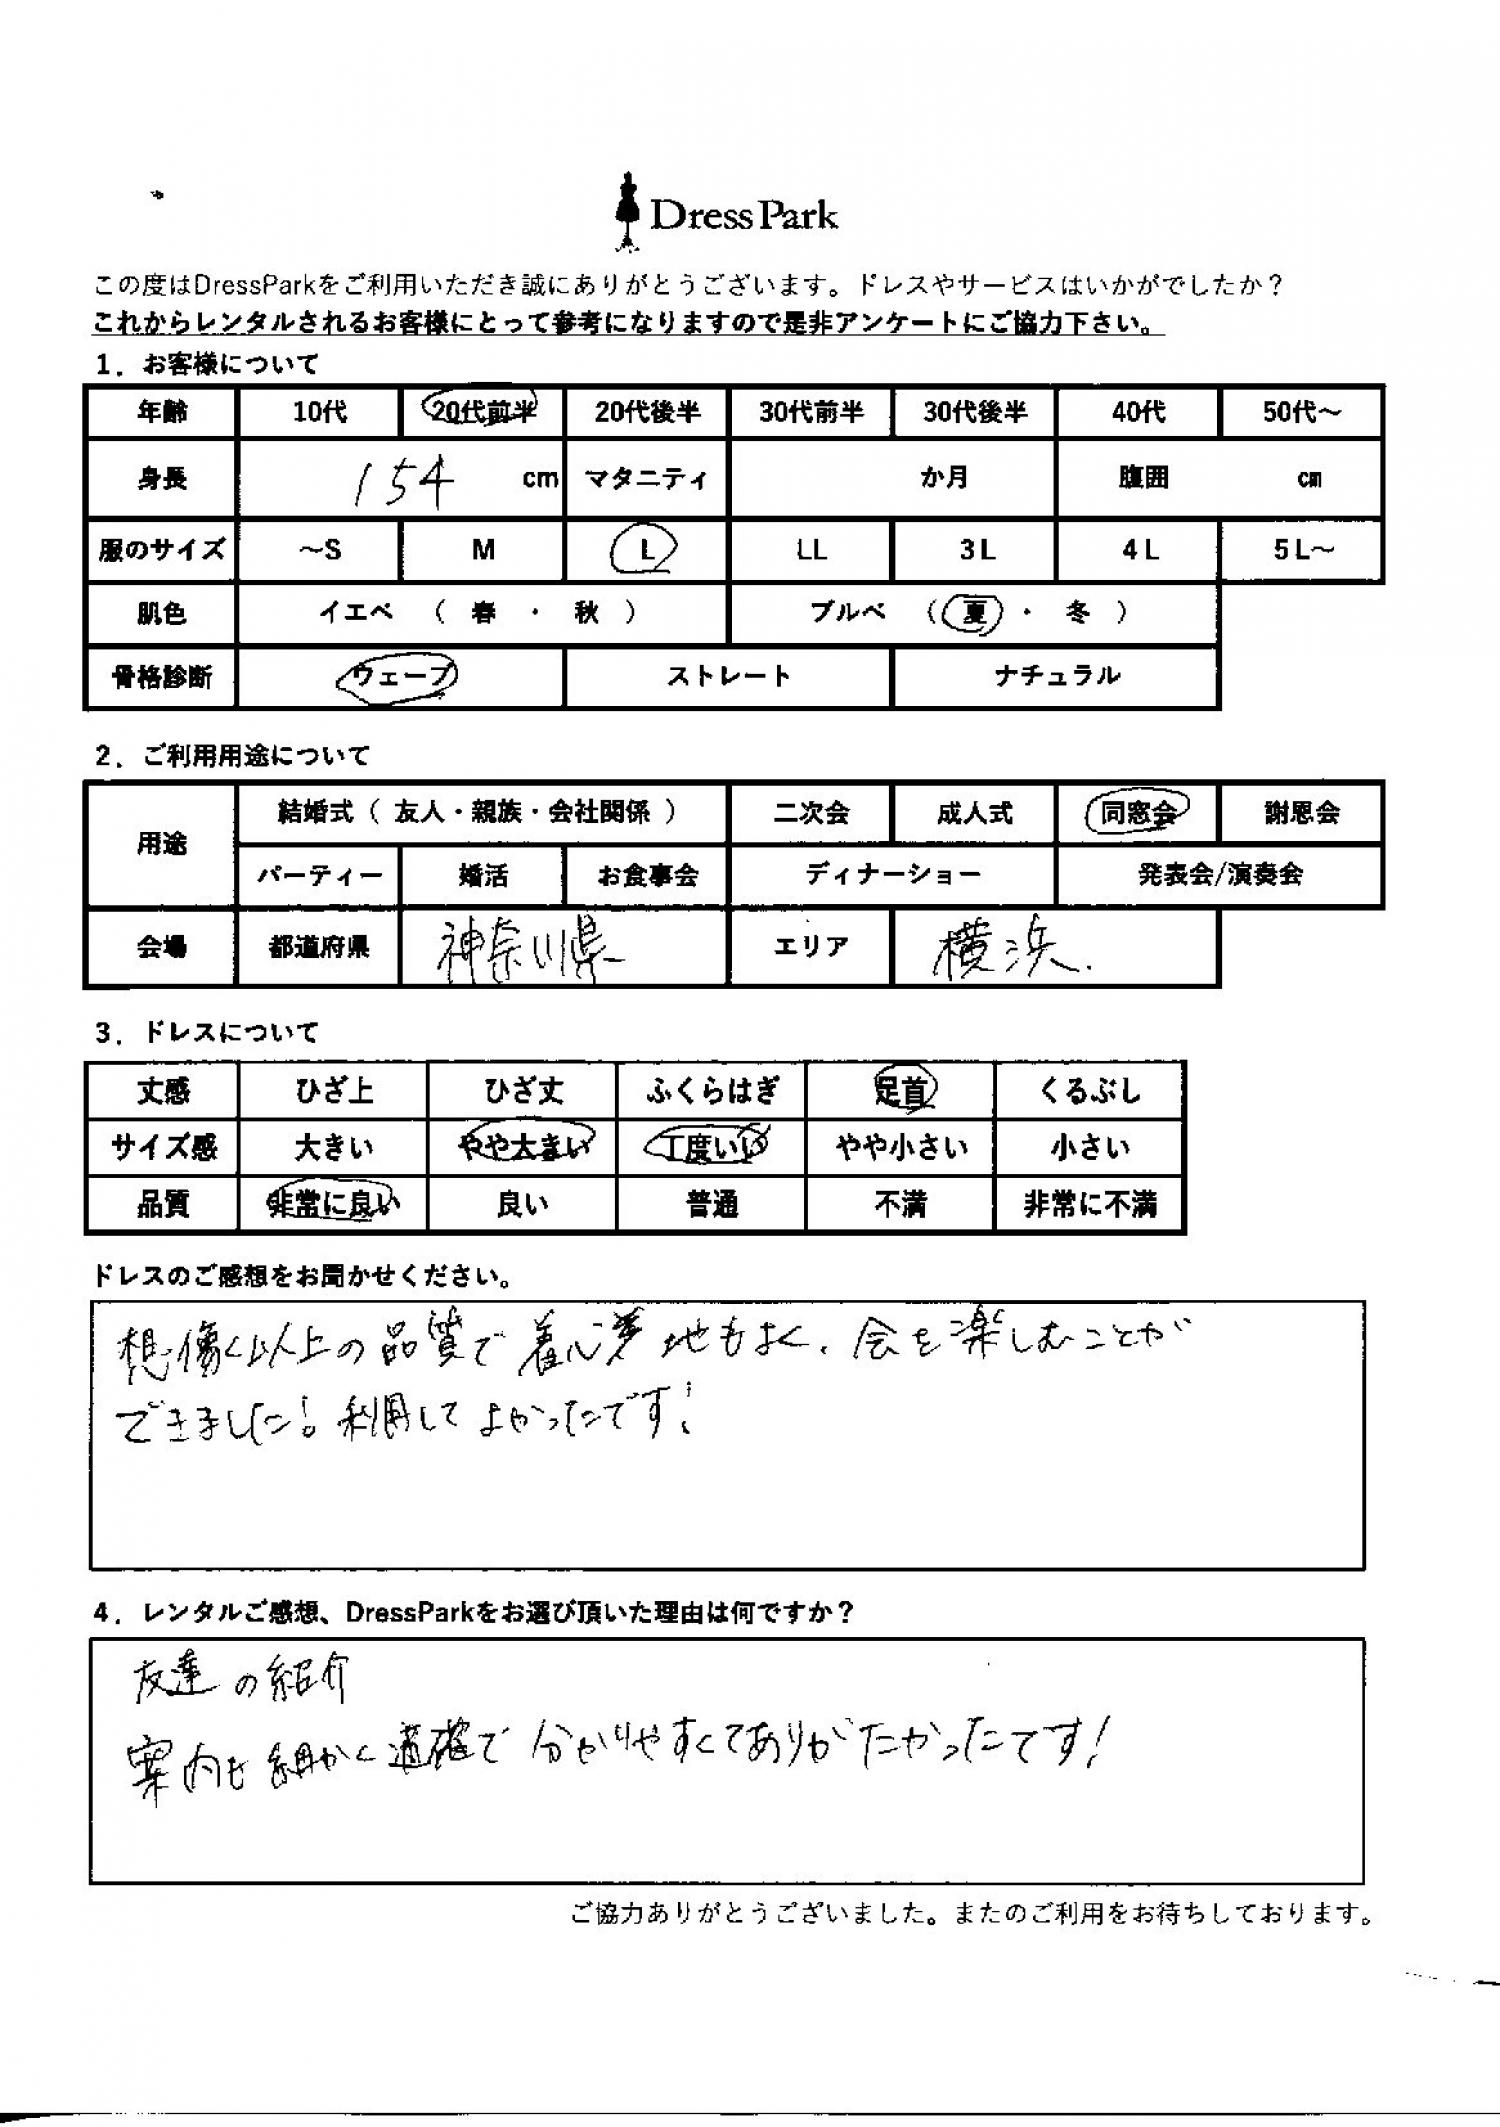 DressPark
この度はDressParkをご利用いただき誠にありがとうございます。ドレスやサービスはいかがでしたか？
これからレンタルされるお客様にとって参考になりますので是非アンケートにご協力下さい。
1．お客様について
年齢 10代 20代前半 20代後半 30代前半 30代後半 40代 50代～
身長 154 cm マタニティ か月 腹囲 ㎝
服のサイズ ～S M L LL 3L 4L 5L～
肌色 イエベ （ 春 ・ 秋 ） ブルベ （ 夏 ・ 冬 ）
骨格診断 ウェーブ ストレート ナチュラル
2．ご利用用途について
用途 結婚式（ 友人・親族・会社関係 ） 二次会 成人式 同窓会 謝恩会
パーティー 婚活 お食事会 ディナーショー 発表会/演奏会
会場 都道府県 神奈川県 エリア 横浜.
3．ドレスについて
丈感 ひざ上 ひざ丈 ふくらはぎ 足首 くるぶし
サイズ感 大きい やや大きい 丁度いい やや小さい 小さい
品質 非常に良い 良い 普通 不満 非常に不満
ドレスのご感想をお聞かせください。
想像以上の品質で着心地もよく、会を楽しむことが
できました！利用してよかったです！
4．レンタルご感想、DressParkをお選び頂いた理由は何ですか？
友達の紹介
案内も細かく適確で分かりやすくてありがたかったです！
ご協力ありがとうございました。またのご利用をお待ちしております。